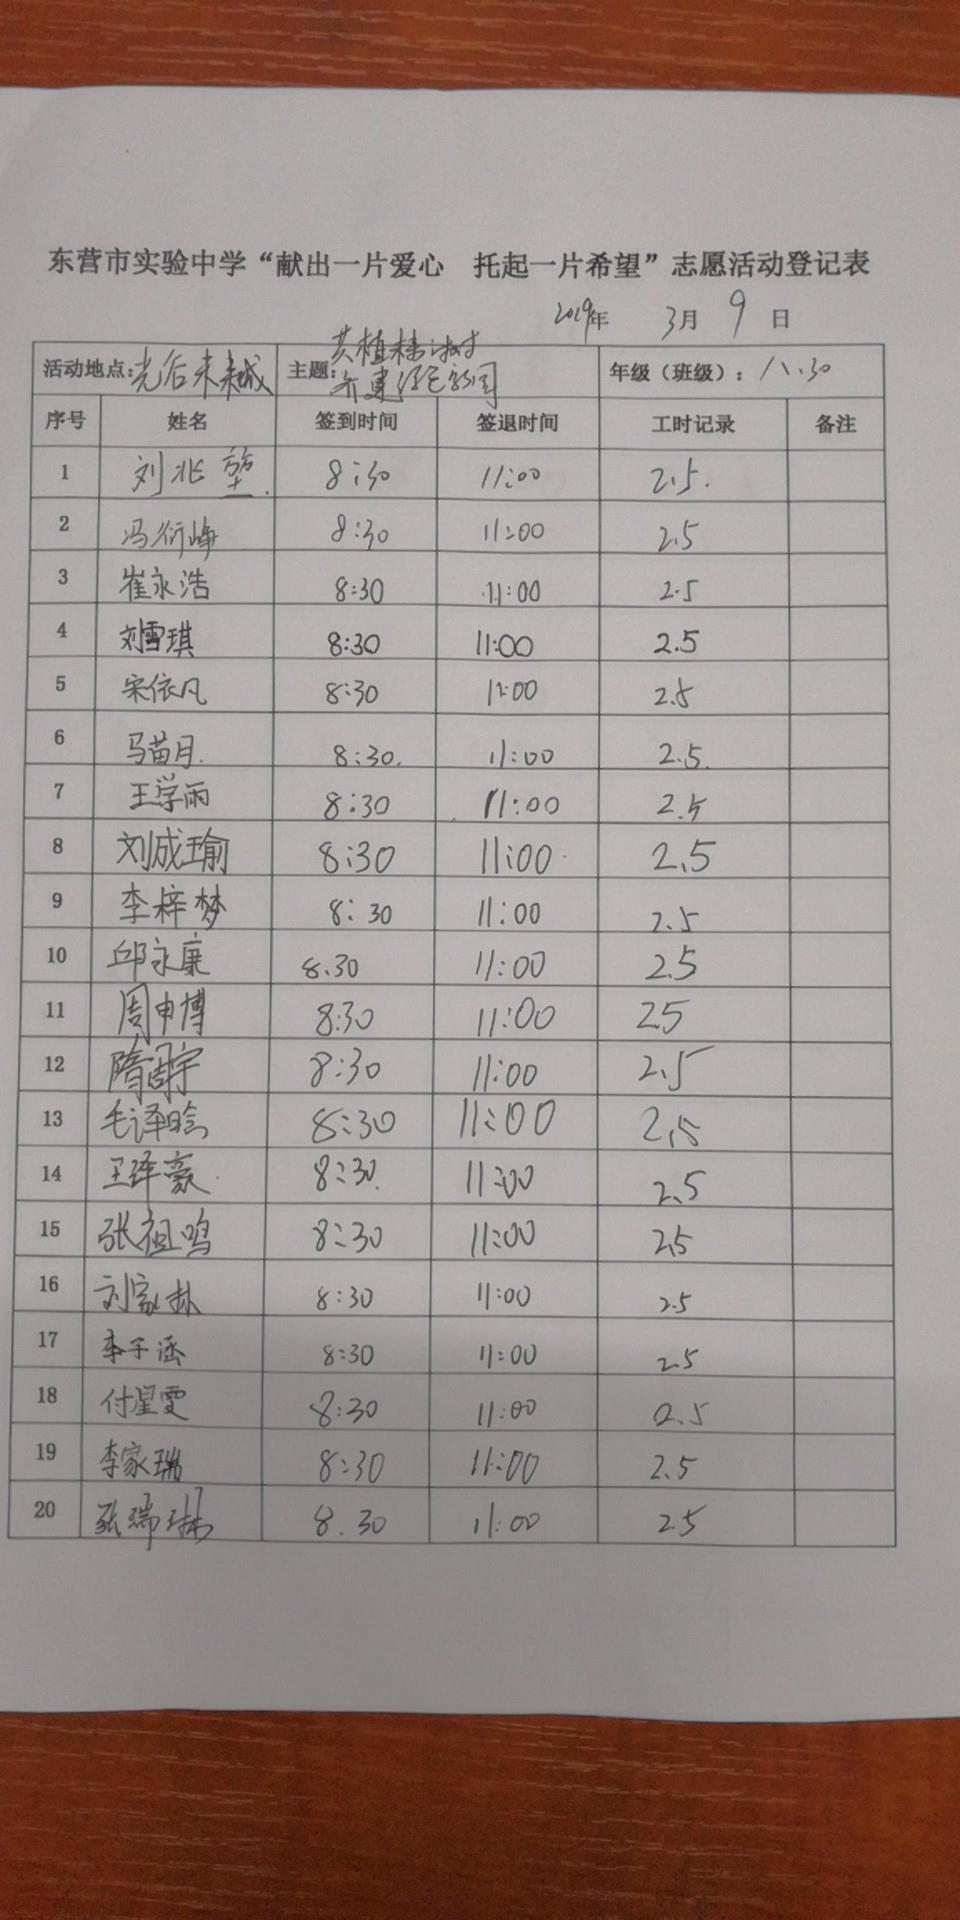 东营市实验中学“献出一片爱心 托起一片希望”志愿活动登记表
2019年 3月 9日
活动地点: 未来城 主题: 共植棵小树 共建绿色校园 年级（班级）: 八.30
序号 姓名 签到时间 签退时间 工时记录 备注
1 刘兆堃. 8:30 11:00 2.5.
2 冯衍峰 8:30 11:00 2.5
3 崔永浩 8:30 11:00 2.5
4 刘雪琪 8:30 11:00 2.5
5 宋依凡 8:30 11:00 2.5
6 马苗月. 8:30. 11:00 2.5.
7 王学雨 8:30 11:00 2.5
8 刘成瑜 8:30 11:00 2.5
9 李梓梦 8:30 11:00 2.5
10 邱永康 8.30 11:00 2.5
11 周申博 8:30 11:00 25
12 隋 宇 8:30 11:00 2.5
13 毛泽晗 8:30 11:00 2.5
14 王泽豪. 8:30. 11:00 2.5
15 张祖鸣 8:30 11:00 2.5
16 刘家林 8:30 11:00 2.5
17 李子涵 8:30 11:00 2.5
18 付星雯 8:30 11:00 2.5
19 李家瑞 8:30 11:00 2.5
20 张瑞琳 8.30 11:00 2.5